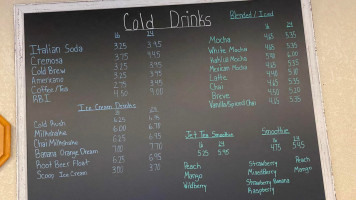 Cold Drinks
16 24
Italian Soda 3.25 3.95
Cremosa 3.75 4.45
Cold Brew 3.25 3.95
Americano 3.25 3.95
Coffee/Tea 2.75 3.45
RBI 4.50 9.00
Ice Cream Drinks
16 24
Cold Rush 6.25 6.95
Milkshake 6.00 6.70
Chai Milkshake 6.25 6.95
Banana Orange Dream 7.00 7.70
Root Beer Float 6.25 6.95
Scoops Ice Cream 3.00 3.70
Blended / Iced
16 24
Mocha 4.65 5.35
White Mocha 4.65 5.35
Kahlua Mocha 6.00
Mexican Mocha 4.65 5.35
Latte 4.40 5.10
Chai 4.65 5.35
Breve 4.50 5.20
Vanilla/Spiced Chai 4.65 5.35
Jet Tea Smoothie
16 24
5.25 5.95
Peach
Mango
Wildberry
Smoothie
16 24
4.75 5.45
Strawberry Peach
Mixed Berry Mango
Strawberry Banana
Raspberry